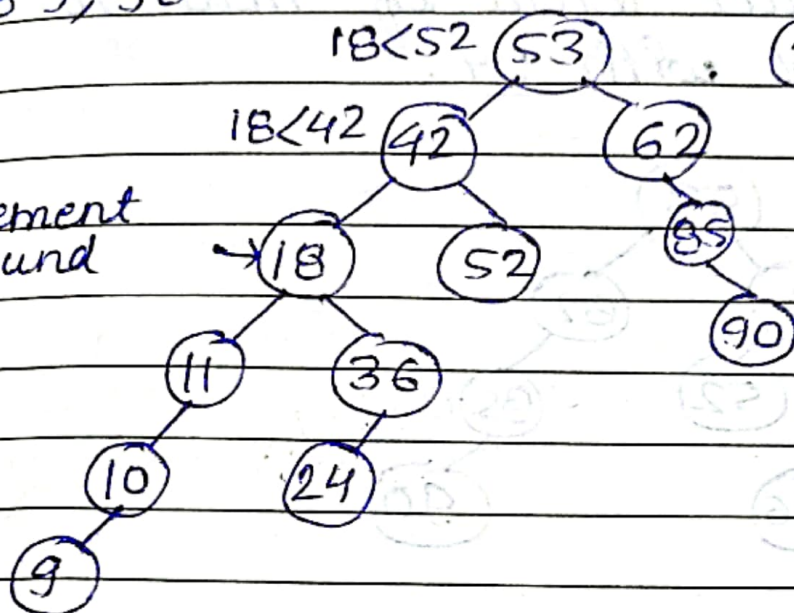 18<52 53
18<42 42 62
ement
und →18 52 85
90
11 36
10 24
9